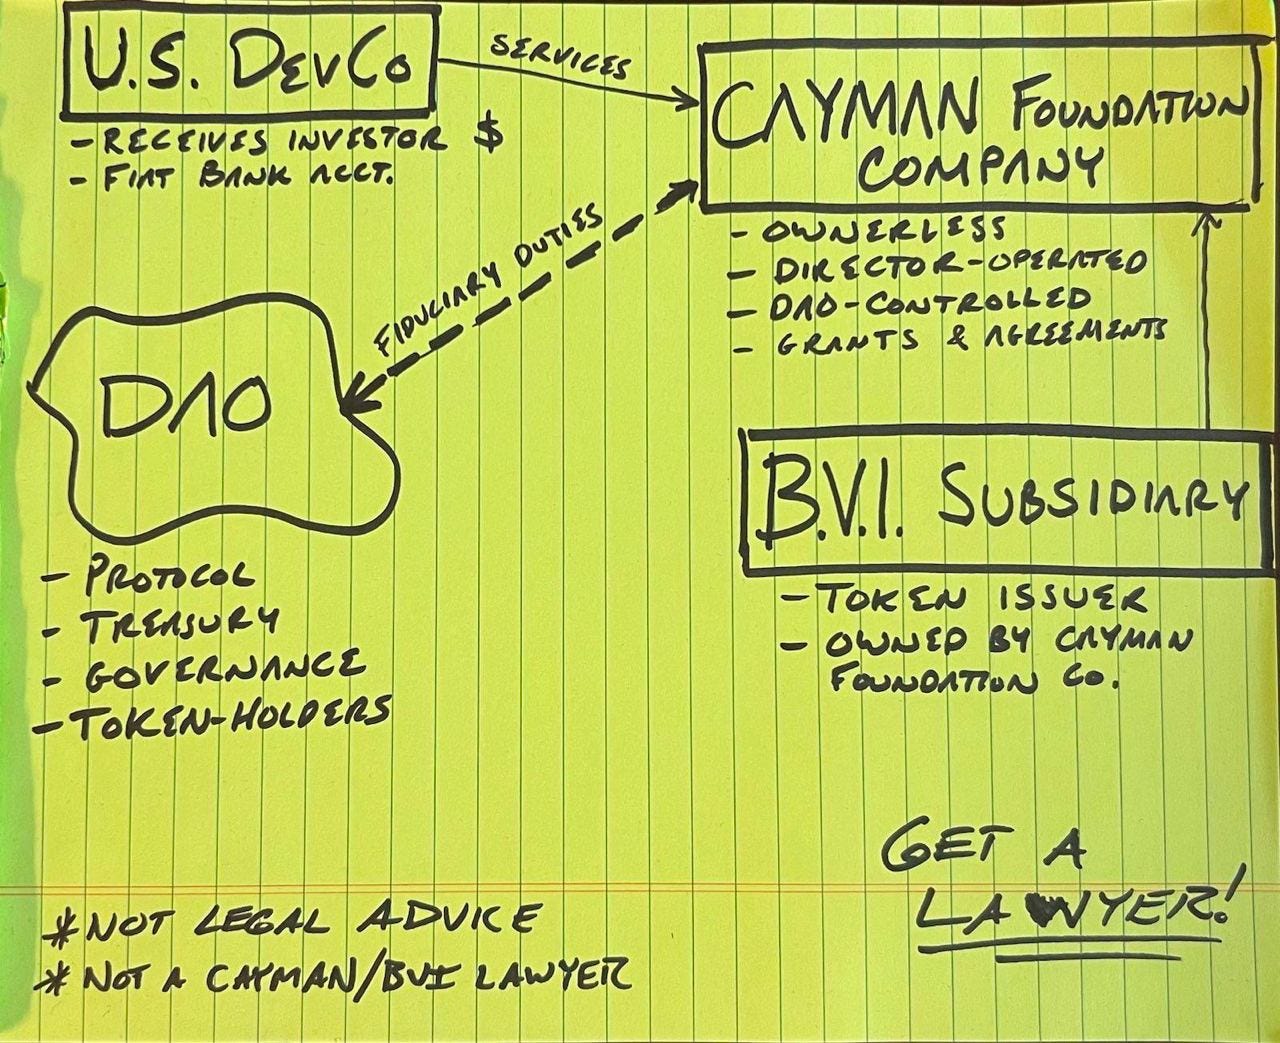 U.S. DEVCO
- RECEIVES INVESTOR $
- FIAT BANK ACCT.
SERVICES
CAYMAN FOUNDATION
COMPANY
- OWNERLESS
- DIRECTOR-OPERATED
- DAO-CONTROLLED
- GRANTS & AGREEMENTS
FIDUCIARY DUTIES
DAO
- PROTOCOL
- TREASURY
- GOVERNANCE
- TOKEN-HOLDERS
B.V.I. SUBSIDIARY
- TOKEN ISSUER
- OWNED BY CAYMAN
FOUNDATION CO.
GET A
LAWYER!
* NOT LEGAL ADVICE
* NOT A CAYMAN/BVI LAWYER